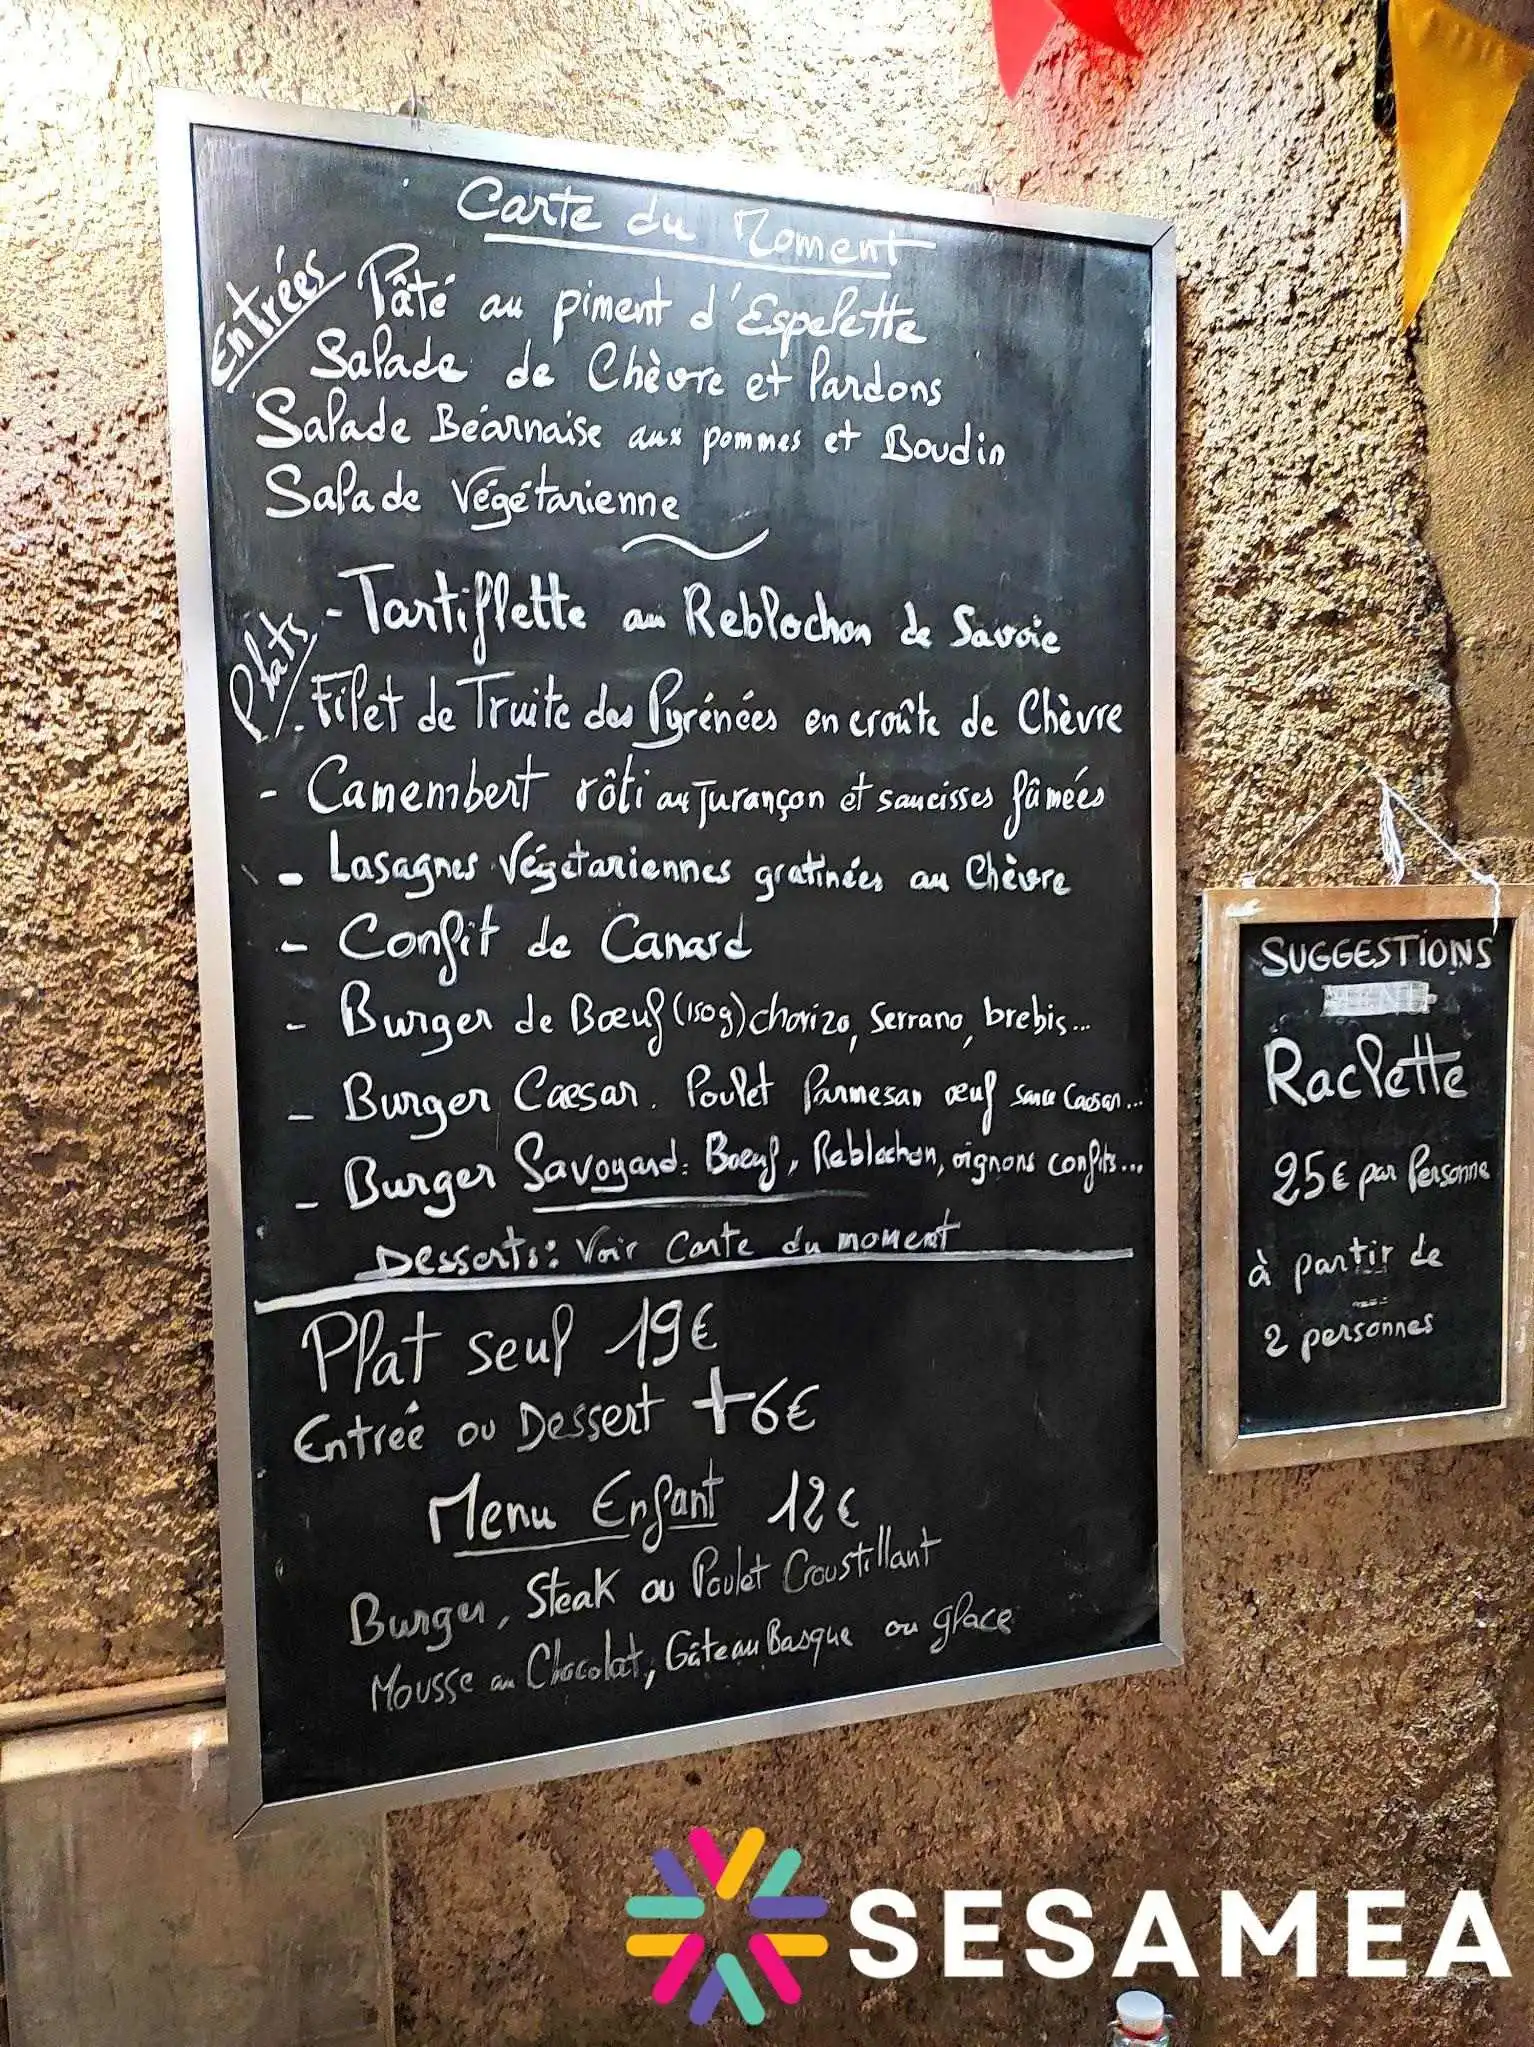 Carte du Moment
Entrées
Pâté au piment d'Espelette
Salade de Chèvre et Lardons
Salade Béarnaise aux pommes et Boudin
Salade Végétarienne
Plats
- Tartiflette au Reblochon de Savoie
- Filet de Truite des Pyrénées en croûte de Chèvre
- Camembert rôti au Jurançon et saucisses fûmées
- Lasagnes Végétariennes gratinées au Chèvre
- Confit de Canard
- Burger de Bœuf (150g) chorizo, Serrano, brebis...
- Burger Caesar. Poulet Parmesan œuf sauce Caesar...
- Burger Savoyard: Boeuf, Reblochon, oignons confits...
Desserts: Voir Carte du moment
Plat seul 19€
Entrée ou Dessert +6€
Menu Enfant 12€
Burger, Steak ou Poulet Croustillant
Mousse au Chocolat, Gâteau Basque ou glace
SUGGESTIONS
Raclette
25€ par Personne
à partir de
2 personnes
SESAMEA